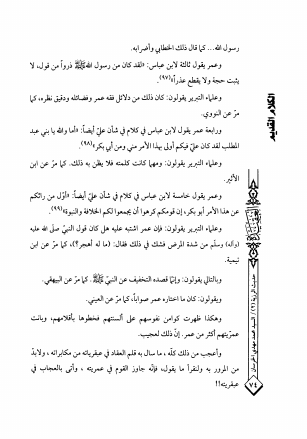 رسول الله... كما قال ذلك الخطابي وأضرابه.
وعمر يقول ثالثة لابن عباس: «لقد كان من رسول الله ﷺ ذرواً من قول، لا
يثبت حجة ولا يقطع عذراً»(٩٧).
وعلماء التبرير يقولون: كان ذلك من دلائل فقه عمر وفضائله ودقيق نظره، كما
مرّ عن النووي.
ورابعة عمر يقول لابن عباس في كلام في شأن عليّ أيضاً: «أما والله يا بني عبد
المطلب لقد كان عليّ فيكم أولى بهذا الأمر مني ومن أبي بكر»(٩٨).
وعلماء التبرير يقولون: ومهما كانت كلمته فلا يظن به ذلك. كما مرّ عن ابن
الأثير.
وعمر يقول خامسة لابن عباس في كلام في شأن عليّ أيضاً: «أوّل من راثكم
عن هذا الأمر أبو بكر، إن قومكم كرهوا أن يجمعوا لكم الخلافة والنبوة»(٩٩)
وعلماء التبرير يقولون: فإن عمر اشتبه عليه هل كان قول النبيّ صلى الله عليه
(وآله) وسلّم من شدة المرض فشك في ذلك فقال: (ما له أهجر؟)، كما مرّ عن ابن
تيمية.
وبالتالي يقولون: وإنّما قصده التخفيف عن النبيّ ﷺ. كما مرّ عن البيهقي.
ويقولون: كان ما اختاره عمر صواباً، كما مرّ عن العيني.
وهكذا ظهرت كوامن نفوسهم على ألسنتهم فخطوها بأقلامهم، وبانت
عمريّتهم أكثر من عمر. إنّ ذلك لعجيب.
وأعجب من ذلك كلّه، ما سال به قلم العقاد في عبقرياته من مكابراته، ولابدّ
من المرور به ولنقرأ ما يقول، فإنّه جاوز القوم في عمريته، وأتى بالعجاب في
عبقريته!!
الكلام القديم
حديث الرزية (٢) / السيد محمد مهدي الخرسان
٧٤